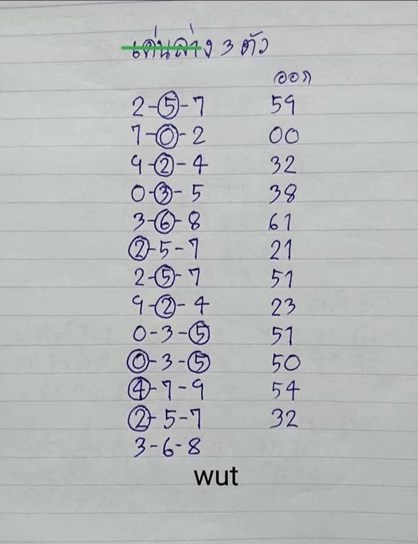 เด่นล่าง 3 ตัว
ออก
2-5-7 59
7-0-2 00
9-2-4 32
0-3-5 38
3-6-8 61
2-5-7 21
2-5-7 51
9-2-4 23
0-3-5 51
0-3-5 50
4-7-9 54
2-5-7 32
3-6-8
wut